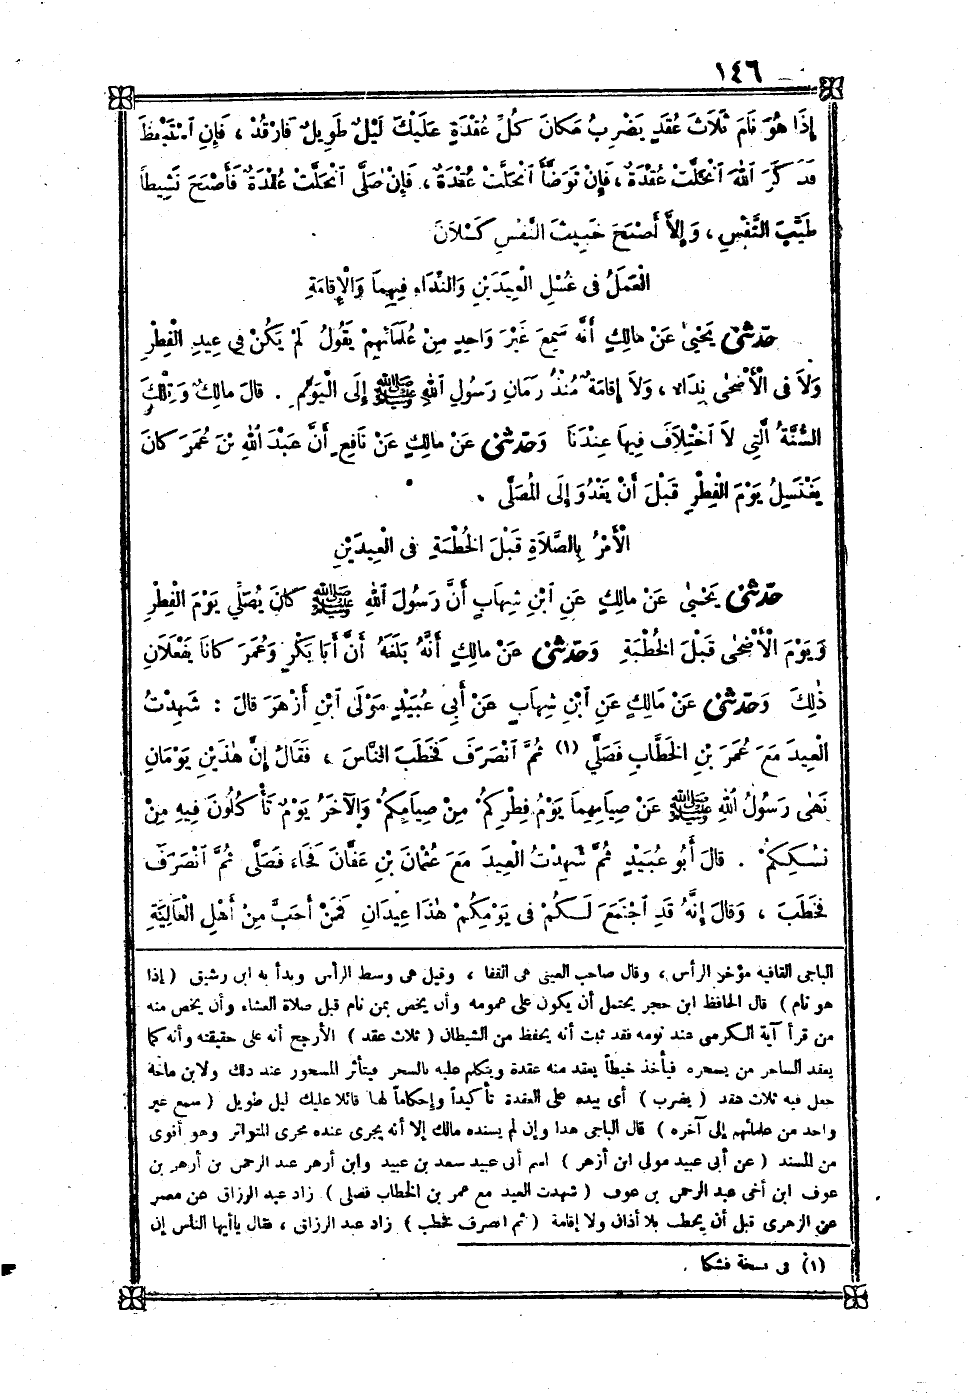 ١٤٦
إِذَا هُوَ نَامَ ثَلَاثَ عُقَدٍ يَضْرِبُ مَكَانَ كُلِّ عُقْدَةٍ عَلَيْكَ لَيْلٌ طَوِيلٌ فَارْقُدْ ، فَإِنِ اسْتَيْقَظَ
فَذَكَرَ اللّٰهَ انْحَلَّتْ عُقْدَةٌ ، فَإِنْ تَوَضَّأَ انْحَلَّتْ عُقْدَةٌ ، فَإِنْ صَلَّى انْحَلَّتْ عُقْدَةٌ فَأَصْبَحَ نَشِيطاً
طَيِّبَ النَّفْسِ ، وَإِلاَّ أَصْبَحَ خَبِيثَ النَّفْسِ كَسْلاَنَ
الْعَمَلُ فِى غُسْلِ الْعِيدَيْنِ وَالنِّدَاءِ فِيهِمَا وَالْإِقَامَةِ
حَدّثَنِى يَحْيَى عَنْ مَالِكٍ أَنَّهُ سَمِعَ غَيْرَ وَاحِدٍ مِنْ عُلَمَائِهِمْ يَقُولُ لَمْ يَكُنْ فِي عِيدِ الْفِطْرِ
وَلاَ فِى الْأَضْحٰى نِدَاءٌ ، وَلاَ إِقَامَةٌ مُنْذُ زَمَانِ رَسُولِ اللهِ ﷺ إِلَى الْيَوْمِ . قَالَ مَالِكٌ وَتِلْكَ
السُّنَّةُ الَّتِي لاَ اخْتِلاَفَ فِيهَا عِنْدَنَا وَحَدّثَنِى عَنْ مَالِكٍ عَنْ نَافِعٍ أَنَّ عَبْدَ اللهِ بْنَ عُمَرَ كَانَ
يَغْتَسِلُ يَوْمَ الْفِطْرِ قَبْلَ أَنْ يَغْدُوَ إِلَى الْمُصَلَّى .
الْأَمْرُ بِالصَّلاَةِ قَبْلَ الْخُطْبَةِ فِى الْعِيدَيْنِ
حَدّثَنِى يَحْيٰى عَنْ مَالِكٍ عَنِ ابْنِ شِهَابٍ أَنَّ رَسُولَ اللهِ ﷺ كَانَ يُصَلِّي يَوْمَ الْفِطْرِ
وَيَوْمَ الْأَضْحٰى قَبْلَ الْخُطْبَةِ وَحَدّثَنِى عَنْ مَالِكٍ أَنَّهُ بَلَغَهُ أَنَّ أَبَا بَكْرٍ وَعُمَرَ كَانَا يَفْعَلاَنِ
ذٰلِكَ وَحَدّثَنِى عَنْ مَالِكٍ عَنِ ابْنِ شِهَابٍ عَنْ أَبِي عُبَيْدٍ مَوْلَى ابْنِ أَزْهَرَ قَالَ : شَهِدْتُ
الْعِيدَ مَعَ عُمَرَ بْنِ الْخَطَّابِ فَصَلَّى (١) ثُمَّ انْصَرَفَ فَخَطَبَ النَّاسَ ، فَقَالَ إِنَّ هٰذَيْنِ يَوْمَانِ
نَهٰى رَسُولُ اللهِ ﷺ عَنْ صِيَامِهِمَا يَوْمُ فِطْرِكُمْ مِنْ صِيَامِكُمْ وَالآخَرُ يَوْمٌ تَأْكُلُونَ فِيهِ مِنْ
نُسُكِكُمْ . قَالَ أَبُو عُبَيْدٍ ثُمَّ شَهِدْتُ الْعِيدَ مَعَ عُثْمَانَ بْنِ عَفَّانَ فَجَاءَ فَصَلَّى ثُمَّ انْصَرَفَ
فَخَطَبَ ، وَقَالَ إِنَّهُ قَدِ اجْتَمَعَ لَكُمْ فِى يَوْمِكُمْ هٰذَا عِيدَانِ فَمَنْ أَحَبَّ مِنْ أَهْلِ الْعَالِيَةِ
الباجى القافيه مؤخر الرأس ، وقال صاحب العينى هى القفا ، وقيل هى وسط الرأس وبدأ به ابن رشيق ( إذا
هو نام ) قال الحافظ ابن حجر يحتمل أن يكون على عمومه وأن يخص بمن نام قبل صلاة العشاء وأن يخص منه
من قرأ آية الكرسى عند نومه فقد ثبت أنه يحفظ من الشيطان ( ثلاث عقد ) الأرجح أنه على حقيقته وأنه كما
يعقد الساحر من يسحره فيأخذ خيطاً يعقد منه عقدة ويتكلم عليه بالسحر فيتأثر المسحور عند ذلك ولابن ماجة
حبل فيه ثلاث عقد ( يضرب ) أى بيده على العقدة تأكيداً وإحكاماً لها قائلا عليك ليل طويل ( سمع غير
واحد من علمائهم إلى آخره ) قال الباجى هذا وإن لم يسنده مالك إلا أنه يجرى عنده مجرى المتواتر وهو أقوى
من المسند ( عن أبى عبيد مولى ابن أزهر ) اسم أبى عبيد سعد بن عبيد وابن أزهر عبد الرحمن بن أزهر بن
عوف ابن أخى عبد الرحمن بن عوف ( شهدت العيد مع عمر بن الخطاب فصلى ) زاد عبد الرزاق عن معمر
عن الزهرى قبل أن يخطب بلا أذان ولا إقامة ( ثم انصرف فخطب ) زاد عبد الرزاق ، فقال ياأيها الناس إن
(١) فى نسخة فشكا .